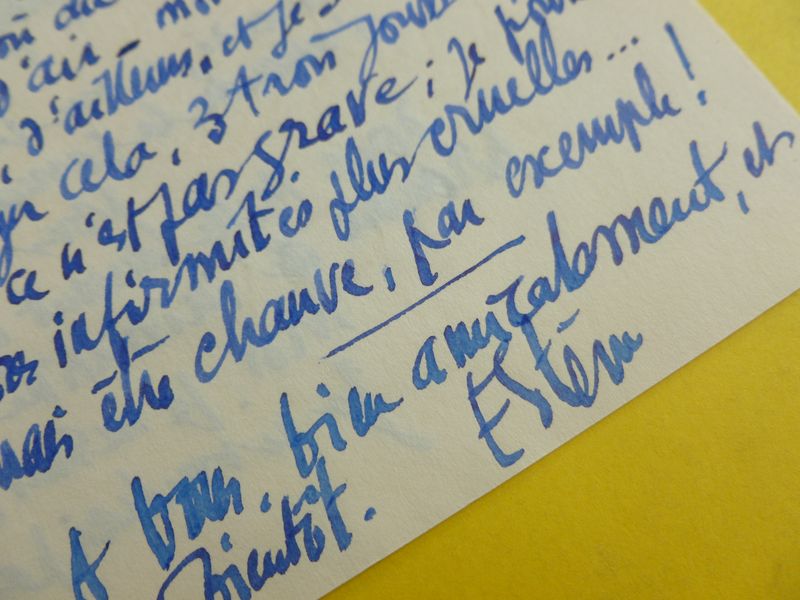 d'air - 
d'ailleurs, et je
cela, 3 trois jours
ce n'est pas grave ; je
infirmités plus cruelles...
mais être chauve, par exemple !
A tous, bien amicalement, et
bientôt.